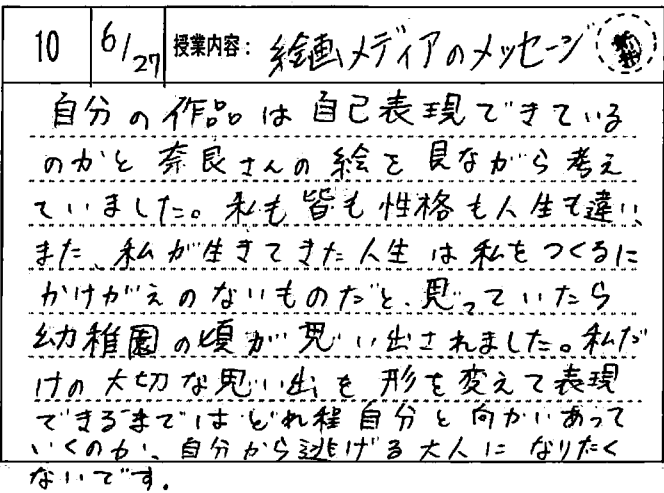 10 6/27 授業内容: 絵画メディアのメッセージ
自分の作品は自己表現できている
のかと奈良さんの絵を見ながら考え
ていました。私も皆も性格も人生も違い、
また、私が生きてきた人生は私をつくるに
かけがえのないものだと、思っていたら
幼稚園の頃が思い出されました。私だ
けの大切な思い出を形を変えて表現
できるまではどれ程自分と向かいあって
いくのか、自分から逃げる大人になりたく
ないです。